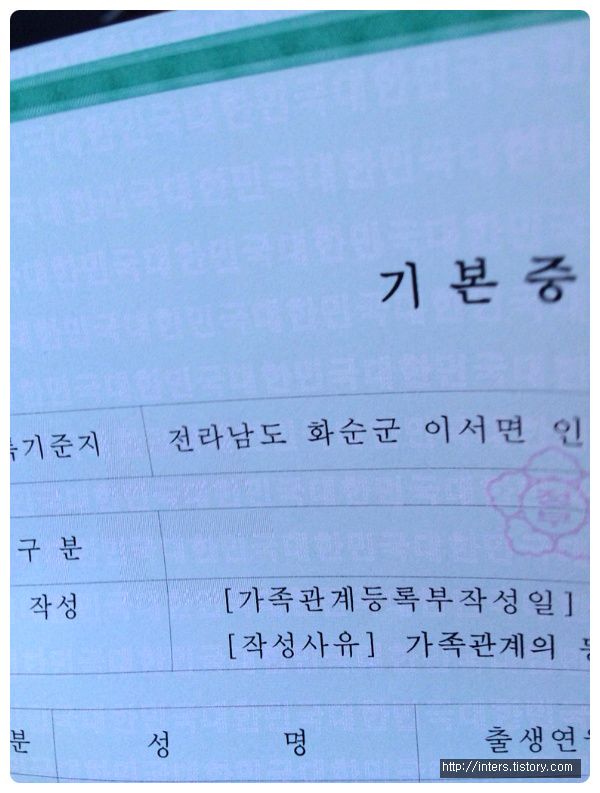 기 본 증
록기준지 전라남도 화순군 이서면 인
구 분
작성 [가족관계등록부작성일]
[작성사유] 가족관계의 등
분 성 명 출생연월
http://inters.tistory.com